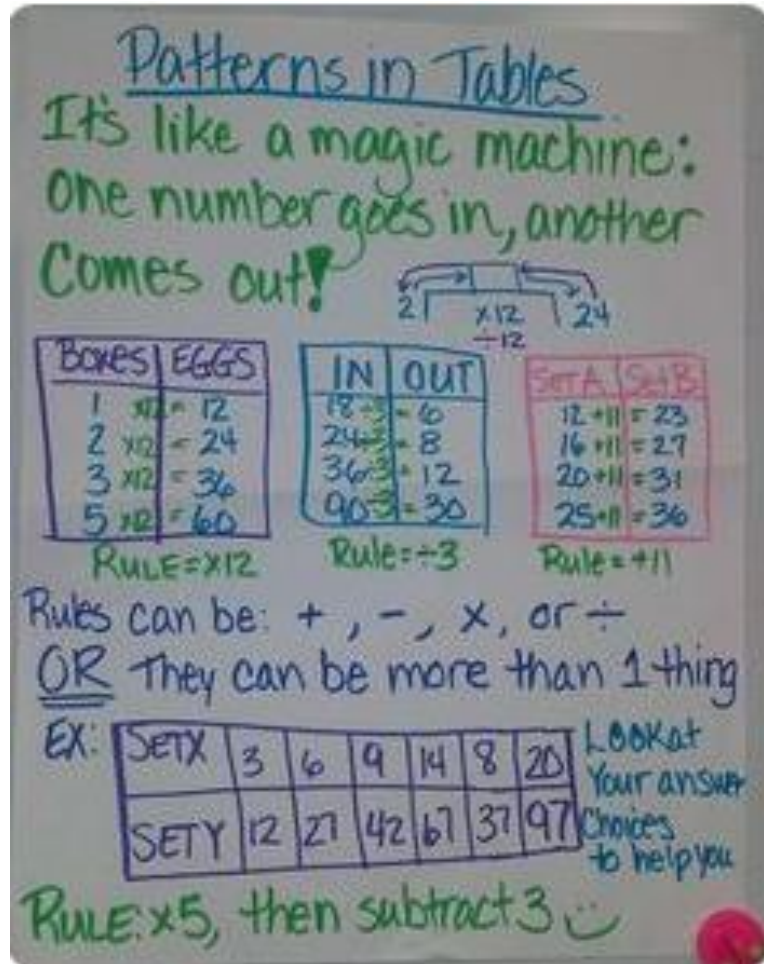 Patterns in Tables
It's like a magic machine:
one number goes in, another
Comes out!
2 x12 24
÷12
BOXES EGGS
1 x12 = 12
2 x12 = 24
3 x12 = 36
5 x12 = 60
RULE=x12
IN OUT
18÷3 = 6
24÷3 = 8
36÷3 = 12
90÷3 = 30
Rule=÷3
Set A Set B
12 +11 = 23
16 +11 = 27
20 +11 = 31
25 +11 = 36
Rule=+11
Rules can be: +, -, x, or ÷
OR They can be more than 1 thing
EX:
SETX 3 6 9 14 8 20
SETY 12 27 42 67 37 97
Look at
Your answer
Choices
to help you
RULE: x5, then subtract 3